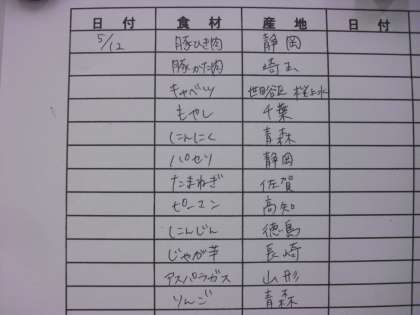 日付 食材 産地 日付
5/12 豚ひき肉 静岡
豚かた肉 埼玉
キャベツ 世田谷区 桜上水
もやし 千葉
にんにく 青森
パセリ 静岡
たまねぎ 佐賀
ピーマン 高知
にんじん 徳島
じゃが芋 長崎
アスパラガス 山形
りんご 青森